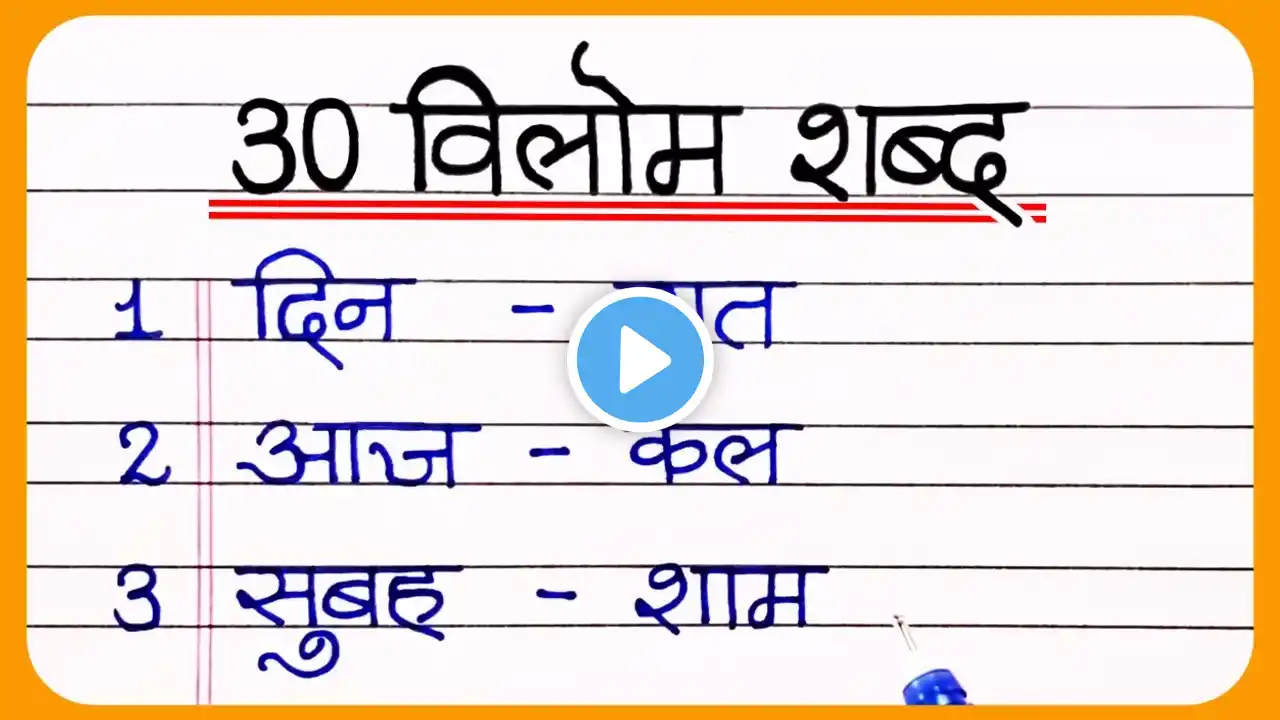 30 विलोम शब्द
1 दिन -
2 आज - कल
3 सुबह - शाम